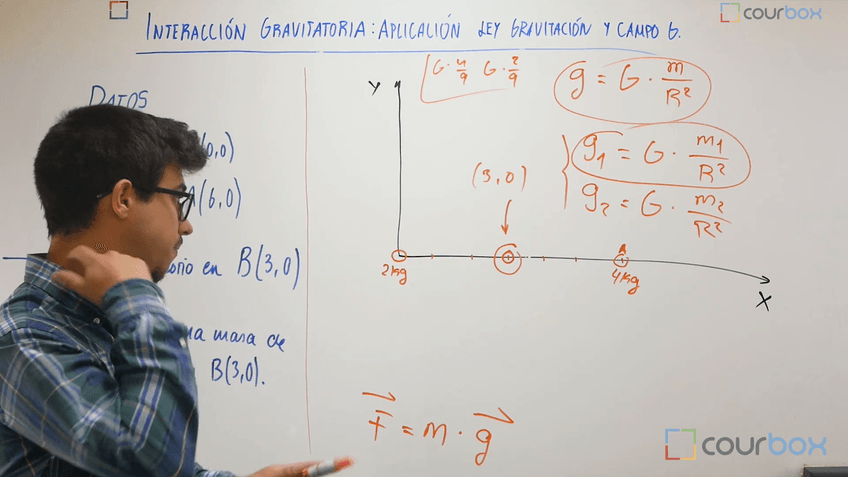 INTERACCIÓN GRAVITATORIA: APLICACIÓN LEY GRAVITACIÓN Y CAMPO G.
courbox
DATOS
(0,0)
A(6,0)
en B(3,0)
masa de
B(3,0).
G · 4/9 G · 2/9
g = G · m/R²
g1 = G · m1/R²
g2 = G · m2/R²
Y
(3,0)
A
2kg
4kg
X
F = m · g
courbox